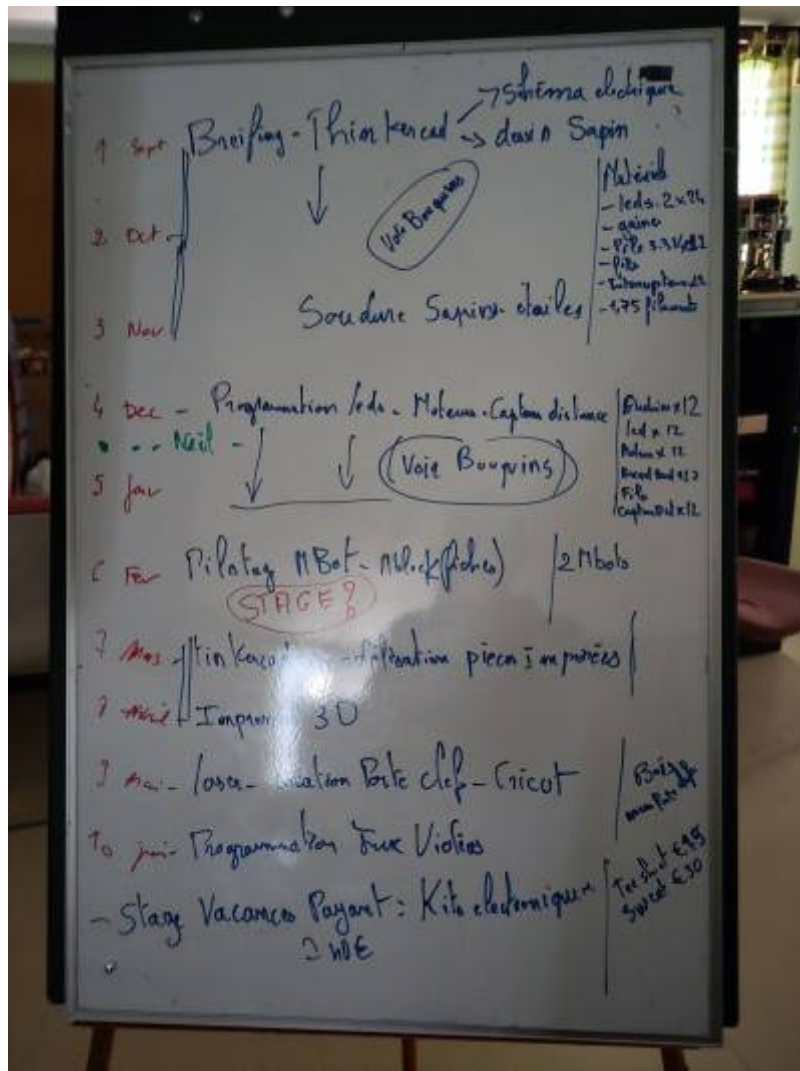 → Schéma electrique
1 Sept Breifing - Thinkercad → dessin Sapin
Voie Bouquins
2 Oct
3 Nov
Soudure Sapins - étoiles
Matériels
- leds. 2x24
- gaine
- Pile 3.3V
- fils
- Interrupteur
- 1,75 filament
4 Dec - Programmation leds - Moteur - Capteur distance
Noël -
5 Jan
(Voie Bouquins)
x12
led x 12
x 12
Bread Board x12
Fils
Capteur Dist x12
6 Fev Pilotag MBot - Mblock (fiches)
2 Mbots
STAGE ?
7 Mars Tinkercad pieces Imposées
Avril 3D
9 Mai - laser - Porte clef - Cricot
Bois
10 juin - Programmation Jeux Vidéos
- Stage Vacances Payant : Kits electronique
40€
Tee shirt €15
Sweet €30